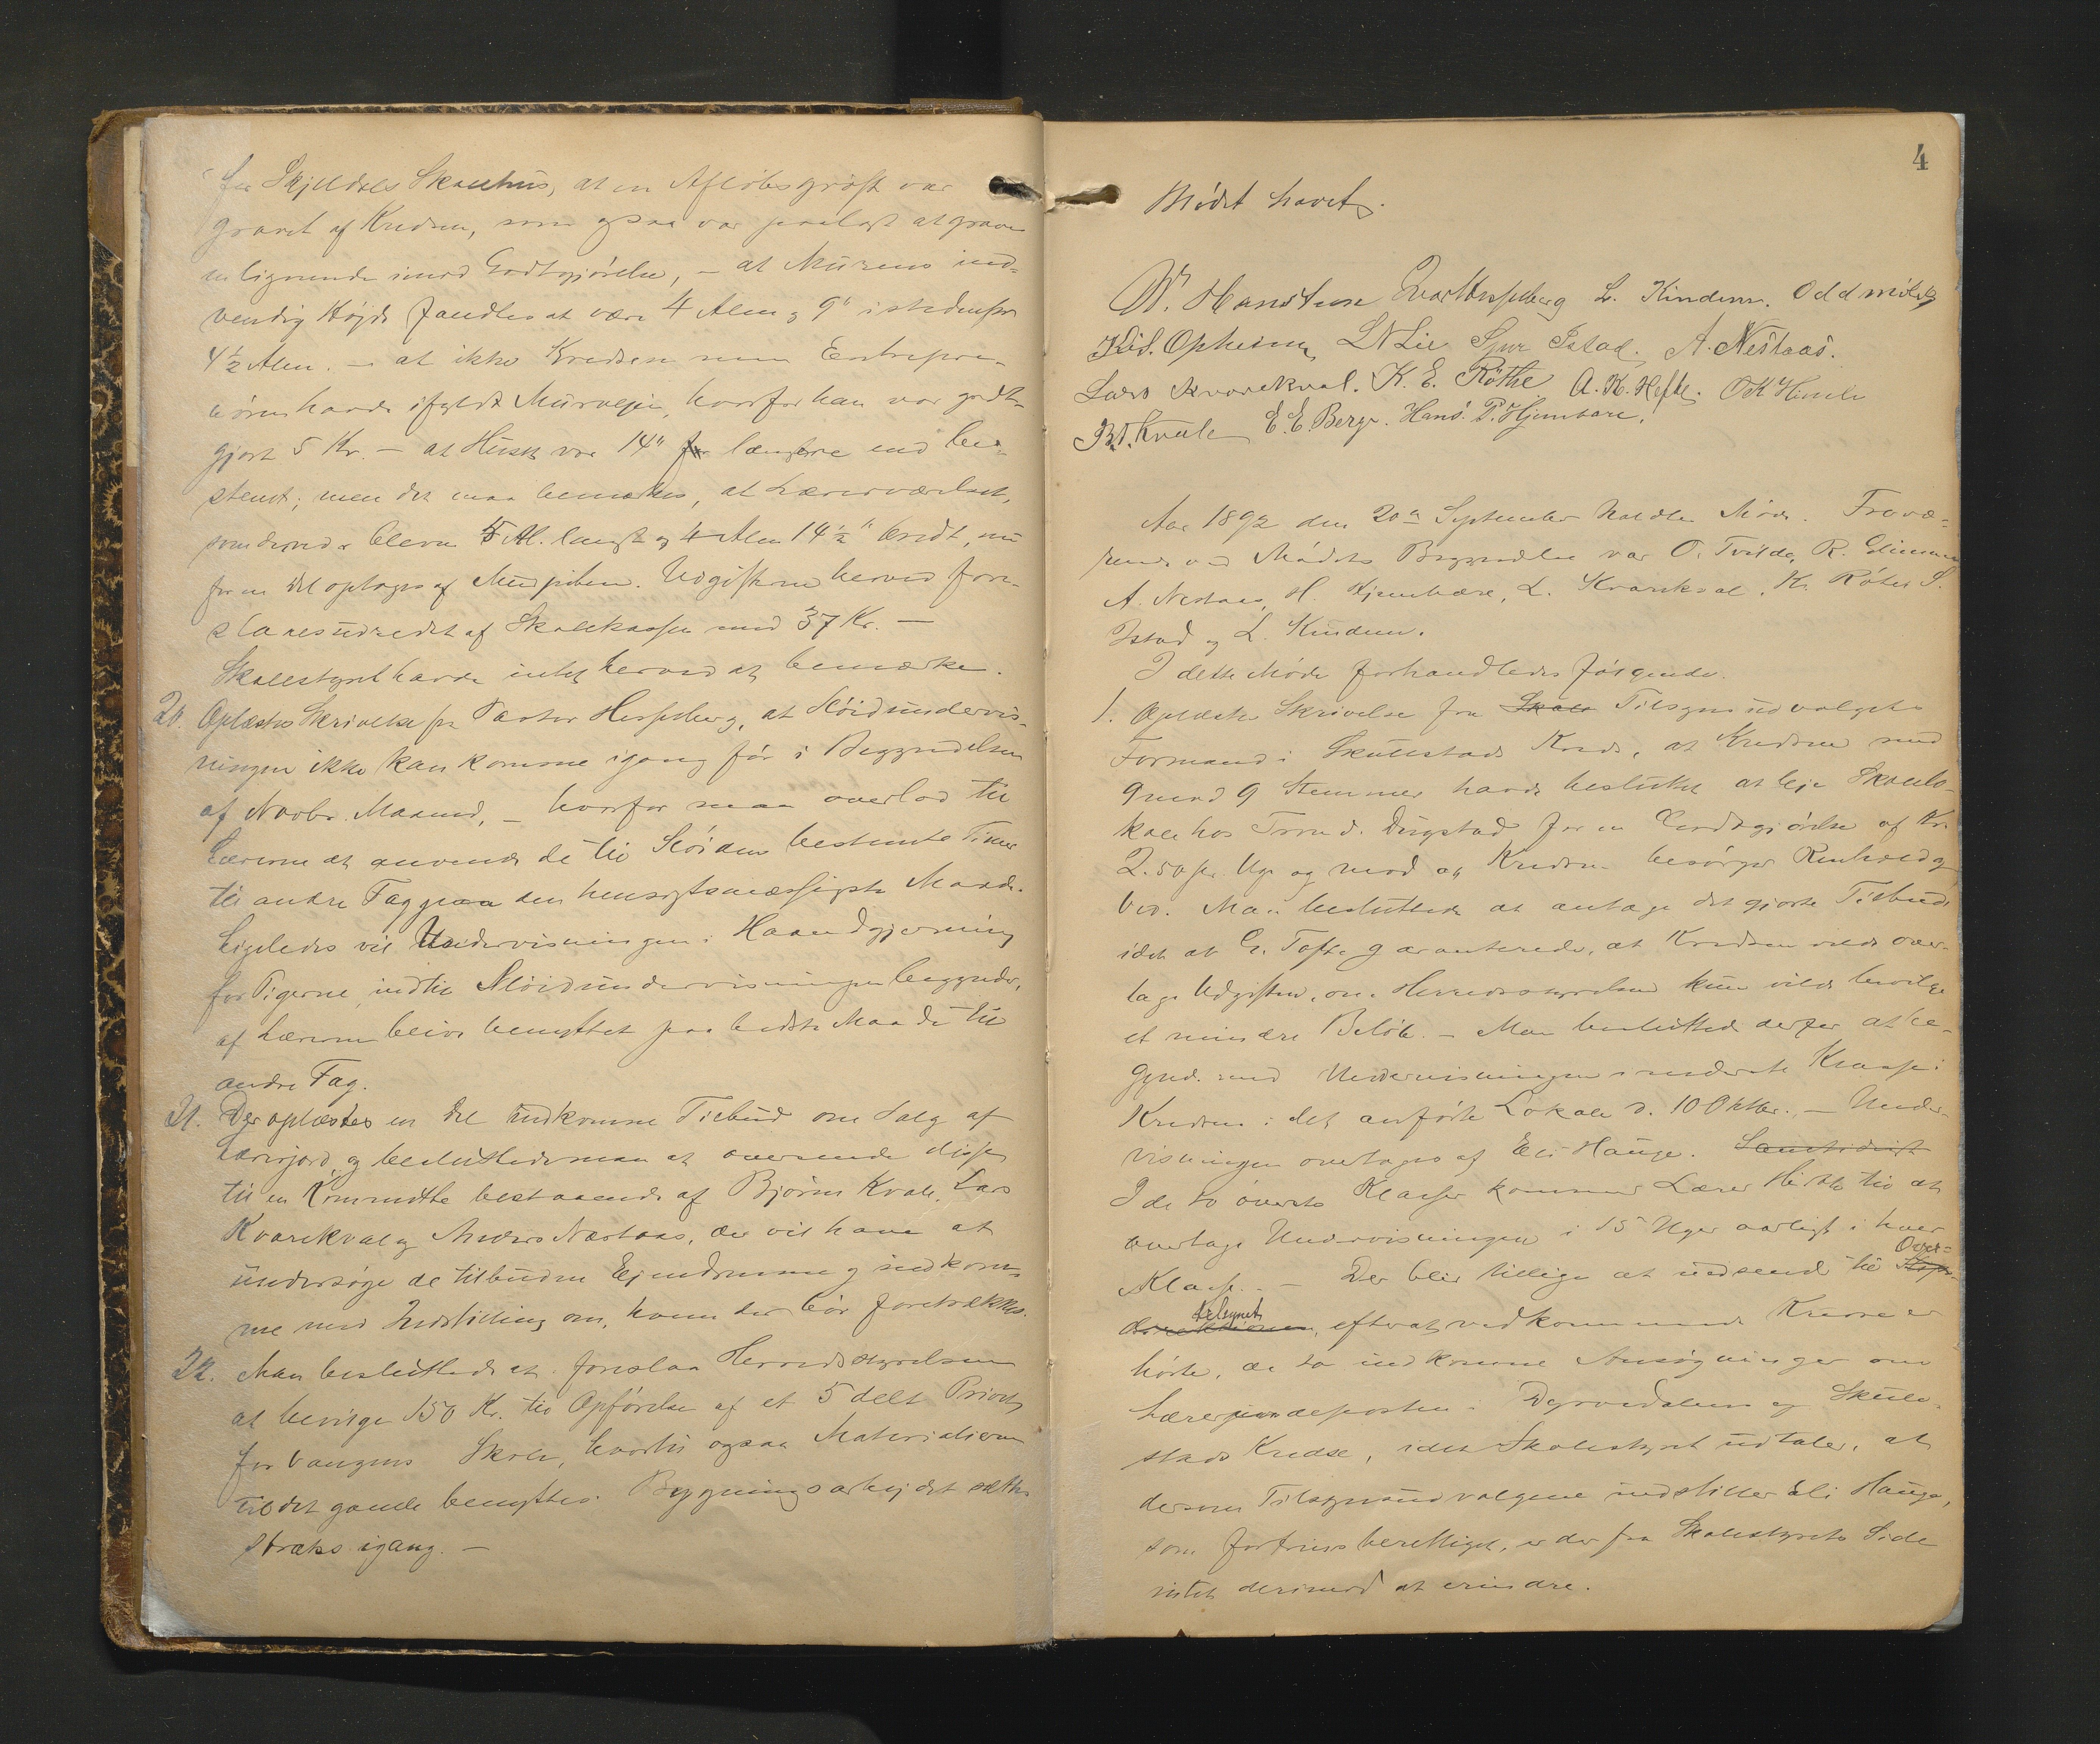 fra Skjeldals Skolehus, at en Afløbsgrøft var
gravet af Kredsen, som ogsaa var paalagt at grave
en lignende imod Godtgjørelse, – at Murens ind-
vendig Højde fandtes at være 4 Alen og 9" istedenfor
4½ Alen. – at ikke Kredsen men Entrepre-
nøren havde ifyldt Murvejen, hvorfor han var godt-
gjort 5 Kr. – at Huset var 14" længere end be-
stemt; men det maa bemærkes, at Lærerværelset,
som derved er bleven 5 Al. langt og 4 Alen 14½" bredt, nu
for en Del optages af Murpiben. Udgifterne herved fore-
slaaes udredet af Skolekassen med 37 Kr. –
Skolestyret havde intet herved at bemærke.
20. Oplæstes Skrivelse fra Pastor Hesselberg, at Sløidundervis-
ningen ikke kan komme igang før i Begyndelsen
af Novbr. Maaned, – hvorfor man overlod til
Lærerne at anvende de til Sløiden bestemte Timer
til andre Fag paa den hensigtsmæssigste Maade.
Ligeledes vil Undervisningen i Haandgjerning
for Pigerne, indtil Sløidundervisningen begynder,
af Lærerne blive benyttet paa bedste Maade til
andre Fag.
21. Der oplæstes en Del indkomne Tilbud om Salg af
Lærerjord, og besluttede man at oversende disse
til en Kommitte bestaaende af Bjørn Kvale, Lars
Kvarekval og Anders Nestaas, der vil have at
undersøge de tilbudne Ejendomme og indkom-
me med Indstilling om, hvem der bør foretrækkes.
22. Man besluttede at foreslaa Herredsstyrelsen
at bevilge 150 Kr. til Opførelse af et 5 delt Privet
for Vangens Skole, hvortil ogsaa Materialierne
til det gamle benyttes. Bygningsarbejdet sættes
straks igang. –
4
Mødet hævet.
W. Hansteen Ivar Hesselberg L. Kindem. Odd
Opheim L N Lie Istad. A. Nestaas.
Lars Kvarekval. K. E. Røthe A. K. Hefte. O K Himle
B.T. Kvale E. E. Berge. Hans. P. Hjembare.
Aar 1892 den 20de September holdtes Møde. Fravæ-
rende ved Mødets Begyndelse var O. Tvilde, R.
A. Nestaas, H. Hjembære, L. Kvarekval, K. Røthe S.
Istad og L. Kindem.
I dette Møde forhandledes følgende.
1. Oplæstes Skrivelse fra Skole Tilsynsudvalgets
Formand i Skulestads Kreds, at Kredsen med
9 mod 9 Stemmer havde besluttet at leje Skolelo-
kale hos Trond. Dugstad for en Godtgjørelse af Kr.
2.50 pr. Uge og mod at Kredsen besørger Renhold og
Ved. Man besluttede at antage det gjorte Tilbud
idet at G. Tofte garanterede, at Kredsen vilde over-
tage Udgiften, om Herredsstyrelsen kun vilde bevilge
et mindre Beløb. – Man besluttede derfor at be-
gynde med Undervisningen i nederste Klasse i
Kredsen i det anførte Lokale d. 10 Oktbr. – Under-
visningen overtages af Eli Hauge. Samtidigt
I de to øverste Klasser kommer Lærer til at
overtage Undervisningen i 15 Uger aarligt i hver
Klasse. – Der blir tillige at indsende til Over-
tilsynet, efterat vedkommende Kredse er
hørte, de to indkomne Ansøgninger om
Lærerindeposten i Dyrvedalens og Skule-
stads Kredse, idet Skolestyret udtaler, at
dersom Tilsynsudvalgene indstiller Eli Hauge,
som fortrinsberettiget, er der fra Skolestyrets Side
intet derimod at erindre.